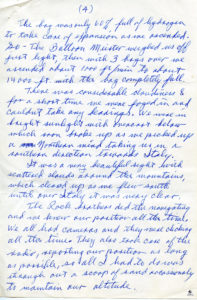 (4)
The bag was only 60% full of hydrogen
to take care of expansion as we ascended.
So - The Balloon Meister weighed us off
first light, then with 3 bags over we
ascended about 1000 ft/min to about
14000 ft with the bag completely full.
There was considerable cloudiness &
for a short time we were fogged in and
couldn't take any bearings. We were in
bright sunlight with overcast below
which soon broke up as we picked up
a Northern wind taking us in a
southern direction towards Italy.
It was a very beautiful sight with
scattered clouds around the mountains
which cleared up as we flew south
until over Italy it was very clear.
The Rock brothers did the navigating
and we knew our position all the time.
We all had cameras and they used clicking
all the time. They also took care of the
radio, reporting our position as long
as possible, so all I had to do was
through out a scoop of sand occasionly
to maintain our altitude.